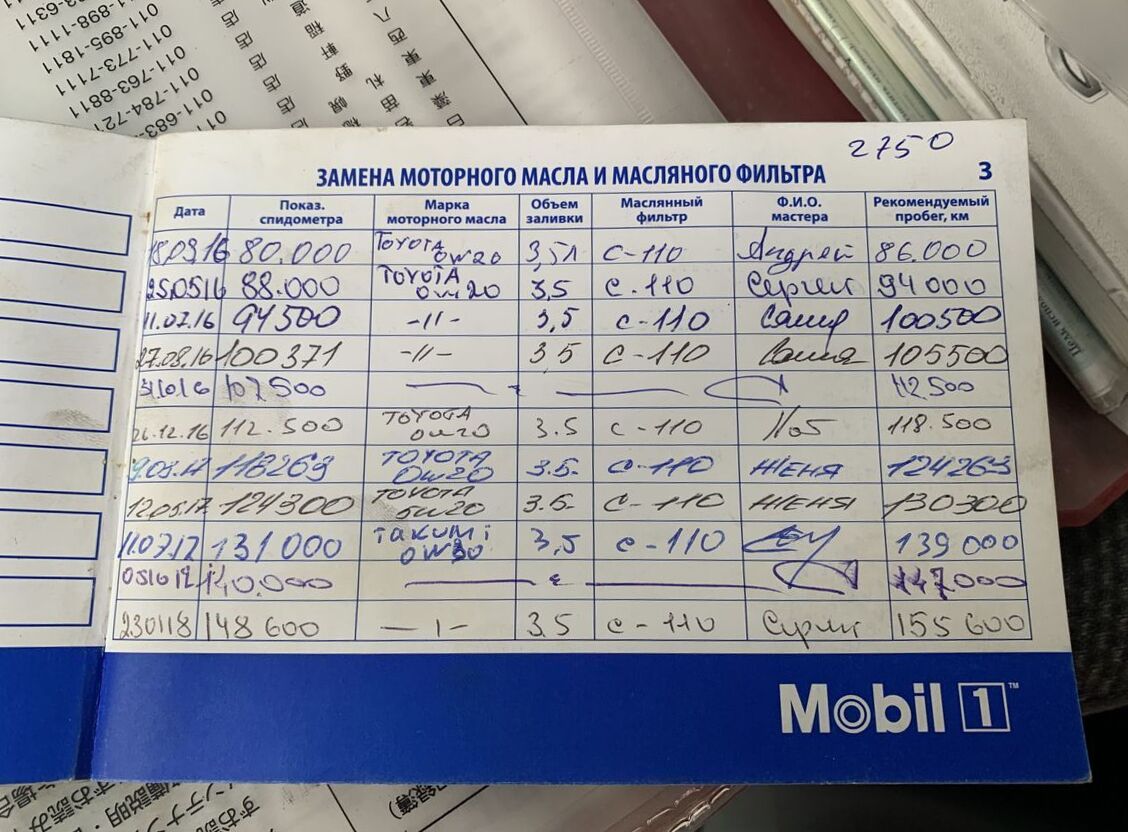 011-898-1111
011-895-1811
011-773-7111
011-763-8811
2750
ЗАМЕНА МОТОРНОГО МАСЛА И МАСЛЯНОГО ФИЛЬТРА 3
Дата Показ. спидометра Марка моторного масла Объем заливки Маслянный фильтр Ф.И.О. мастера Рекомендуемый пробег, км
18.03.16 80.000 TOYOTA 0W20 3,5л С-110 Андрей 86.000
25.05.16 88.000 TOYOTA 0W20 3,5 С-110 Сергей 94000
11.07.16 94500 -//- 3,5 С-110 Саша 100500
27.08.16 100371 -//- 3,5 С-110 Саша 105500
107500 112.500
26.12.16 112.500 TOYOTA 0W20 3.5 С-110 118.500
118269 TOYOTA 0W20 3.5 С-110 ЖЕНЯ 124269
12.05.17 124300 TOYOTA 5W20 3.5 С-110 ЖЕНЯ 130300
11.07.17 131000 TAKUMi 0W30 3,5 С-110 139 000
140.000 147.000
230118 148 600 3.5 С-110 Сергей 155 600
Mobil 1™